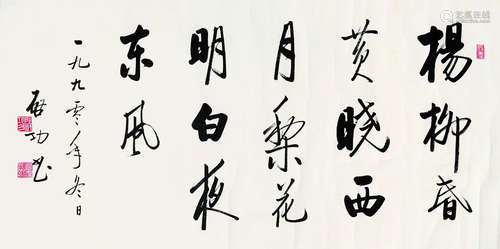 楊柳昏
黄晓西
月梨花
明白夜
东风
一九九零年冬日
启功书